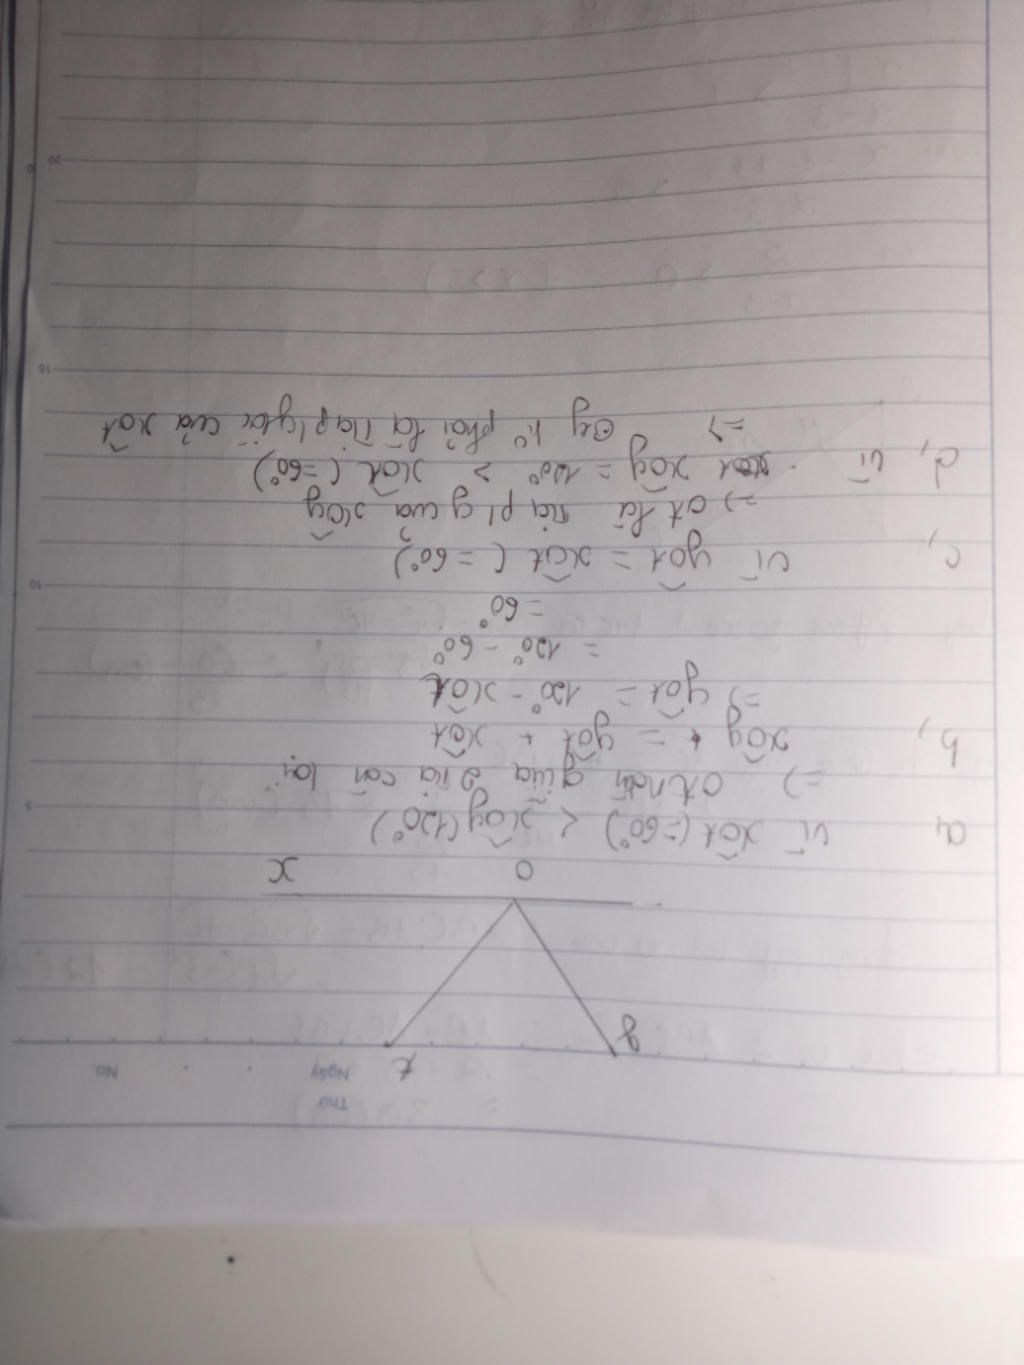 Thứ
Ngày No.
t
y
O x
a, Vì xÔt (=60°) < xÔy (120°)
=> Ot nằm giữa 2 tia còn lại
b, xÔy = yÔt + xÔt
=> yÔt = 120° - xÔt
= 120° - 60°
= 60°
c, Vì yÔt = xÔt (= 60°)
=> Ot là tia p/g của xÔy
d, Vì xÔy = 120° > xÔt (= 60°)
=> Oy k° phải là tia p/giác của xÔt
5
10
15
20